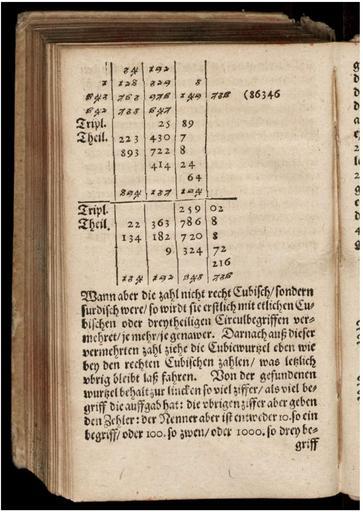 34 192
1 028 329
643 763 976 149 736 (86346
642 735 647
Tripl. 25 89
Theil. 223 430 7
893 722 8
414 24
64
894 137 104
Tripl. 259 02
Theil. 22 363 786 8
134 182 720 8
9 324 72
216
134 192 045 736
Wann aber die zahl nicht recht Cubisch/ sondern
surdisch were/ so wirdt sie erstlich mit etlichen Cu-
bischen oder dreytheiligen Circulbegriffen ver-
mehret/ je mehr/ je genawer. Darnach auß dieser
vermehrten zahl ziehe die Cubicwurtzel eben wie
bey den rechten Cubischen zahlen/ was letzlich
vbrig bleibt laß fahren. Von der gefundenen
wurtzel behalt zur lincken so viel ziffer/ als viel be-
griff die auffgab hat: die vbrigen ziffer aber geben
den Zehler: der Nenner aber ist entweder 10. so ein
begriff/ oder 100. so zwen/ oder 1000. so drey be-
griff